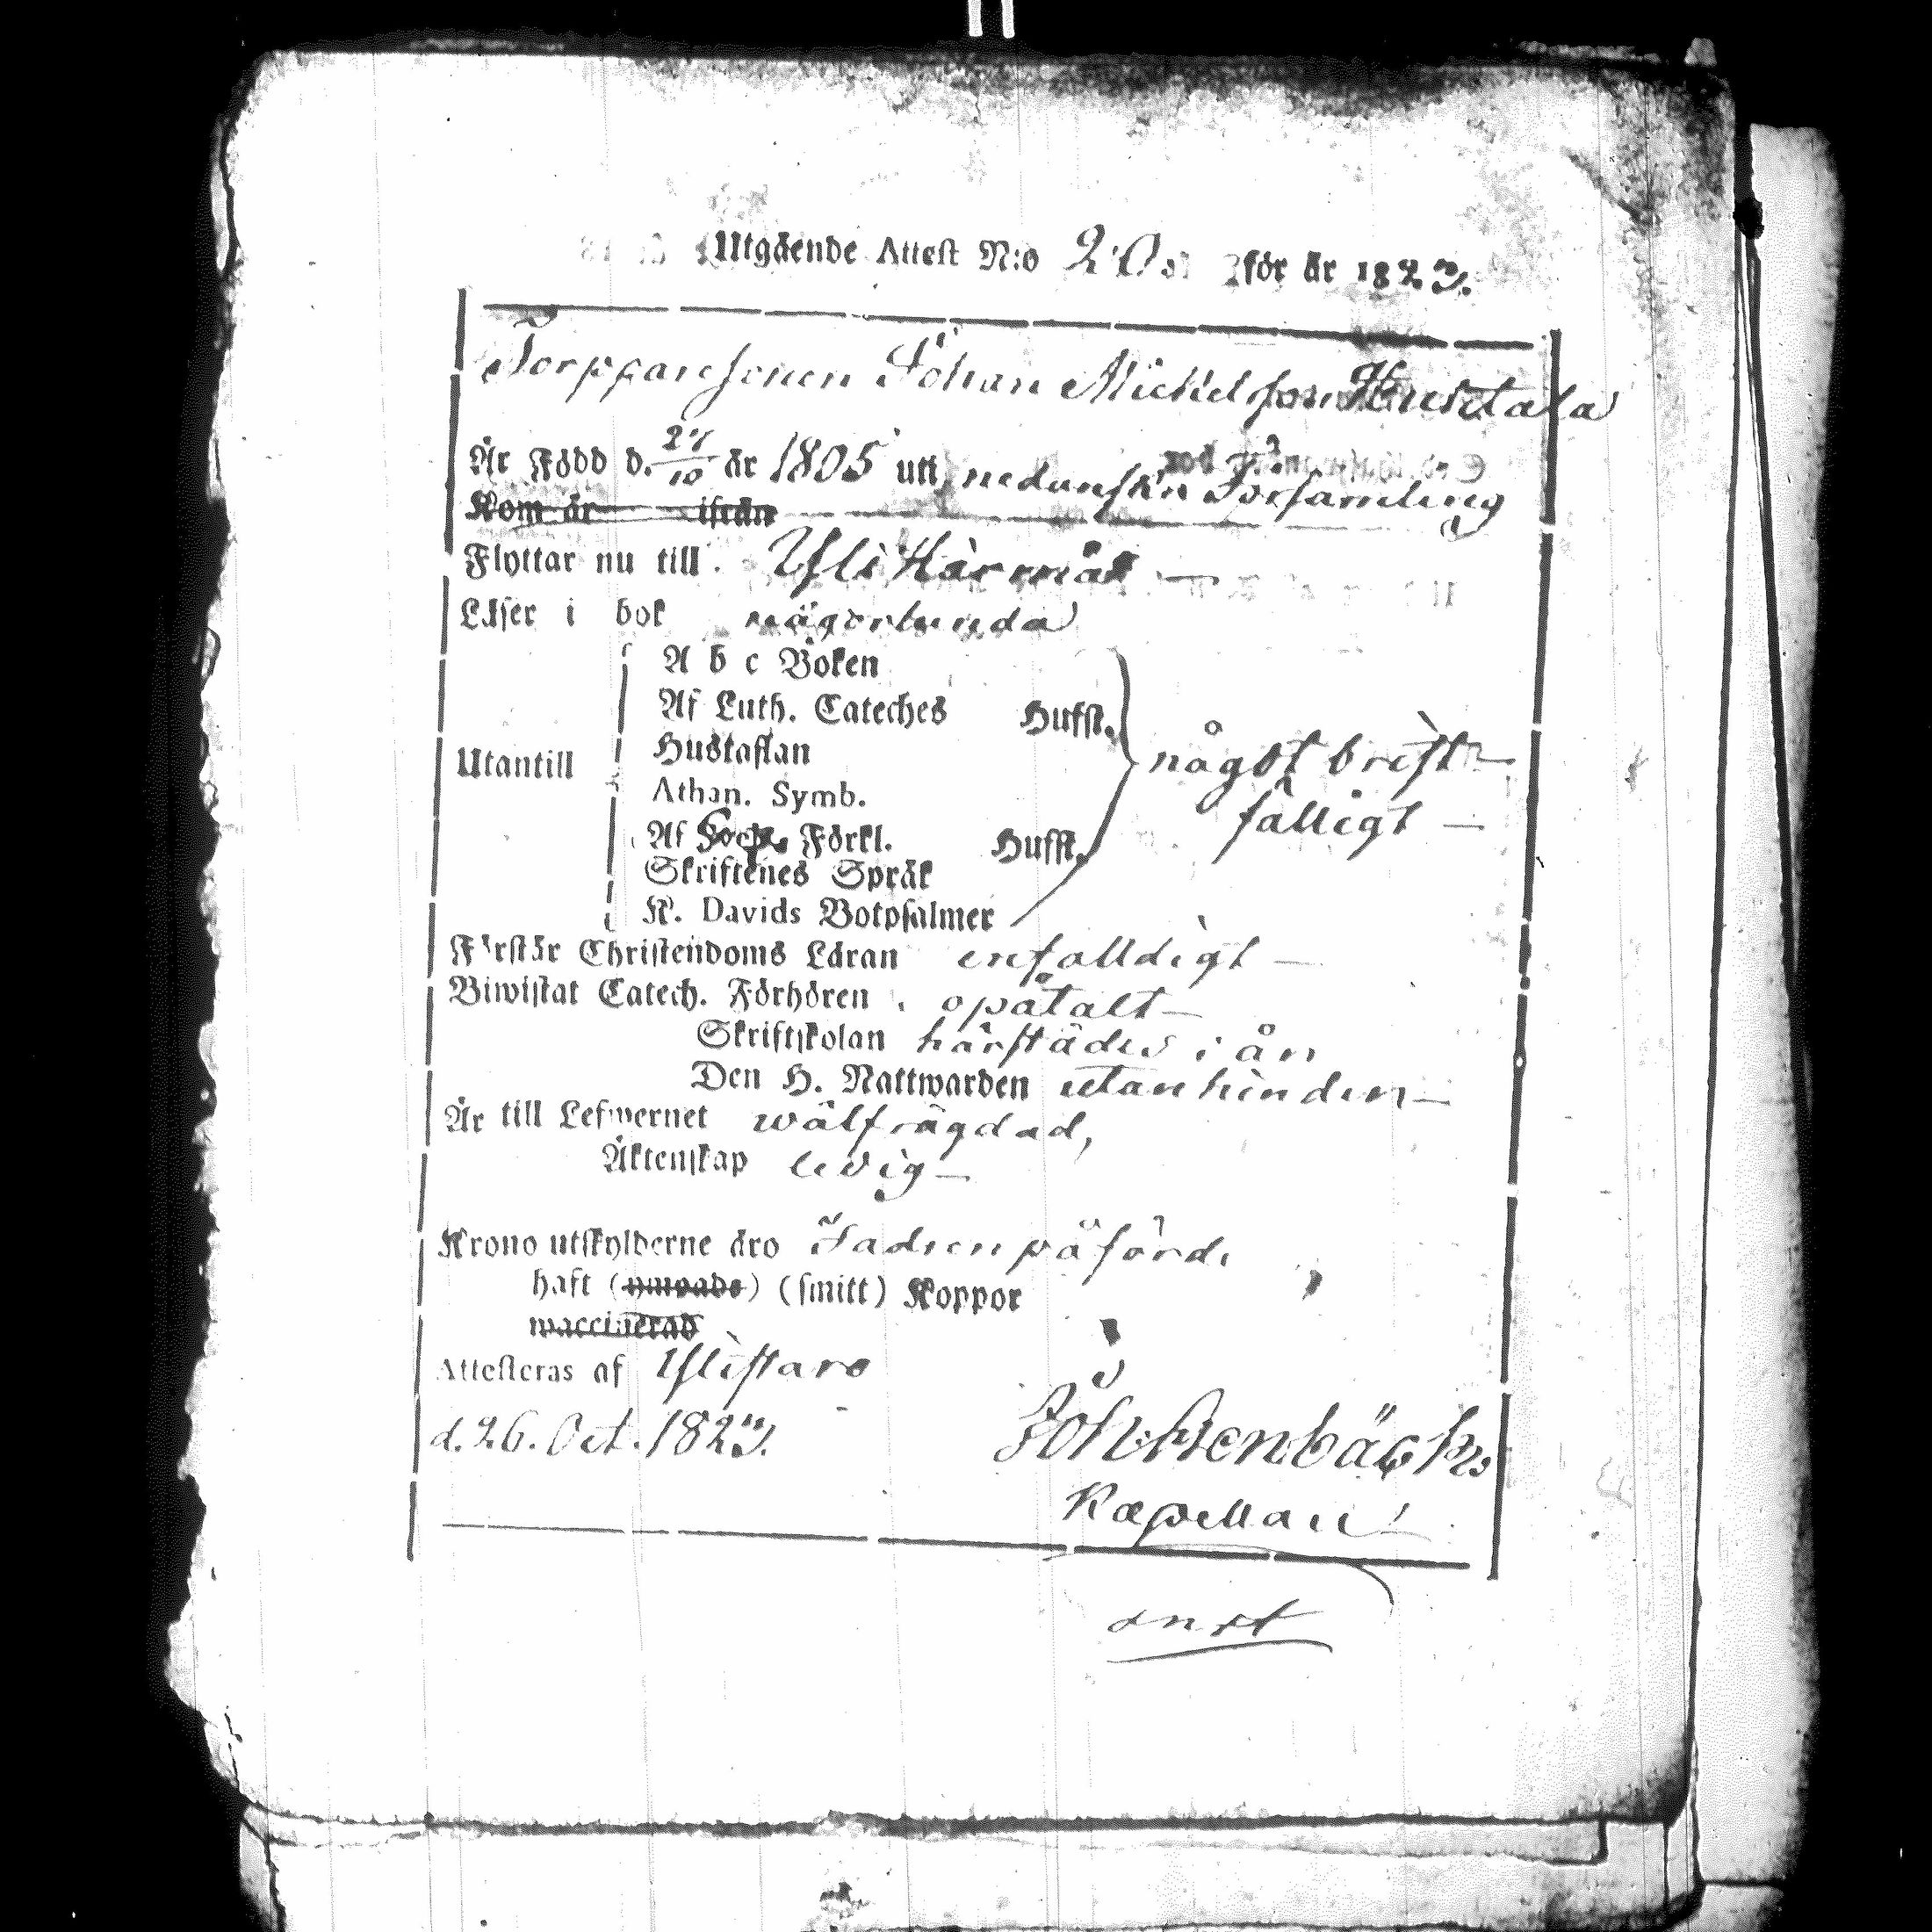 Utgående Attest N:o 20. för år 1823.
Torpparesonen Johan Michelsson
Är Född d. 27/10 år 1805 uti nedanskr: Församling
Kom år ifrån
Flyttar nu till Ylihärmä —
Läser i bok någorlunda
A b c Boken
Af Luth. Cateches Hufst.
Hustaflan
Utantill något brist-
Athan. Symb.
fälligt —
Af Förkl. Hufst.
Skriftenes Språk
K. Davids Botpsalmer
Förstår Christendoms Läran enfalldigt —
Biwistat Catech. Förhören opåtalt —
Skriftskolan härstädes i år
Den H. Nattwarden utan hinder —
Är till Lefwernet wälfrägdad,
Äktenskap ledig —
Krono utskylderne äro Fadren påförde
haft (ympade) (smitt) Koppor
waccinerad
Attesteras af Ylistaro
d. 26. Oct. 1823.
Joh: Stenbäck
Kapellan